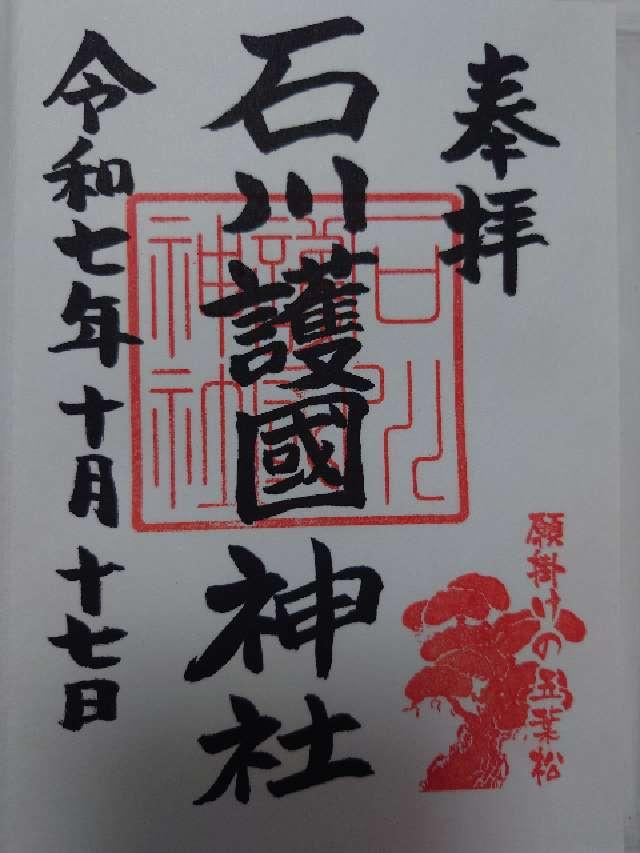 奉拝
石川護國神社
石川護國神社
令和七年十月十七日
願掛けの五葉松